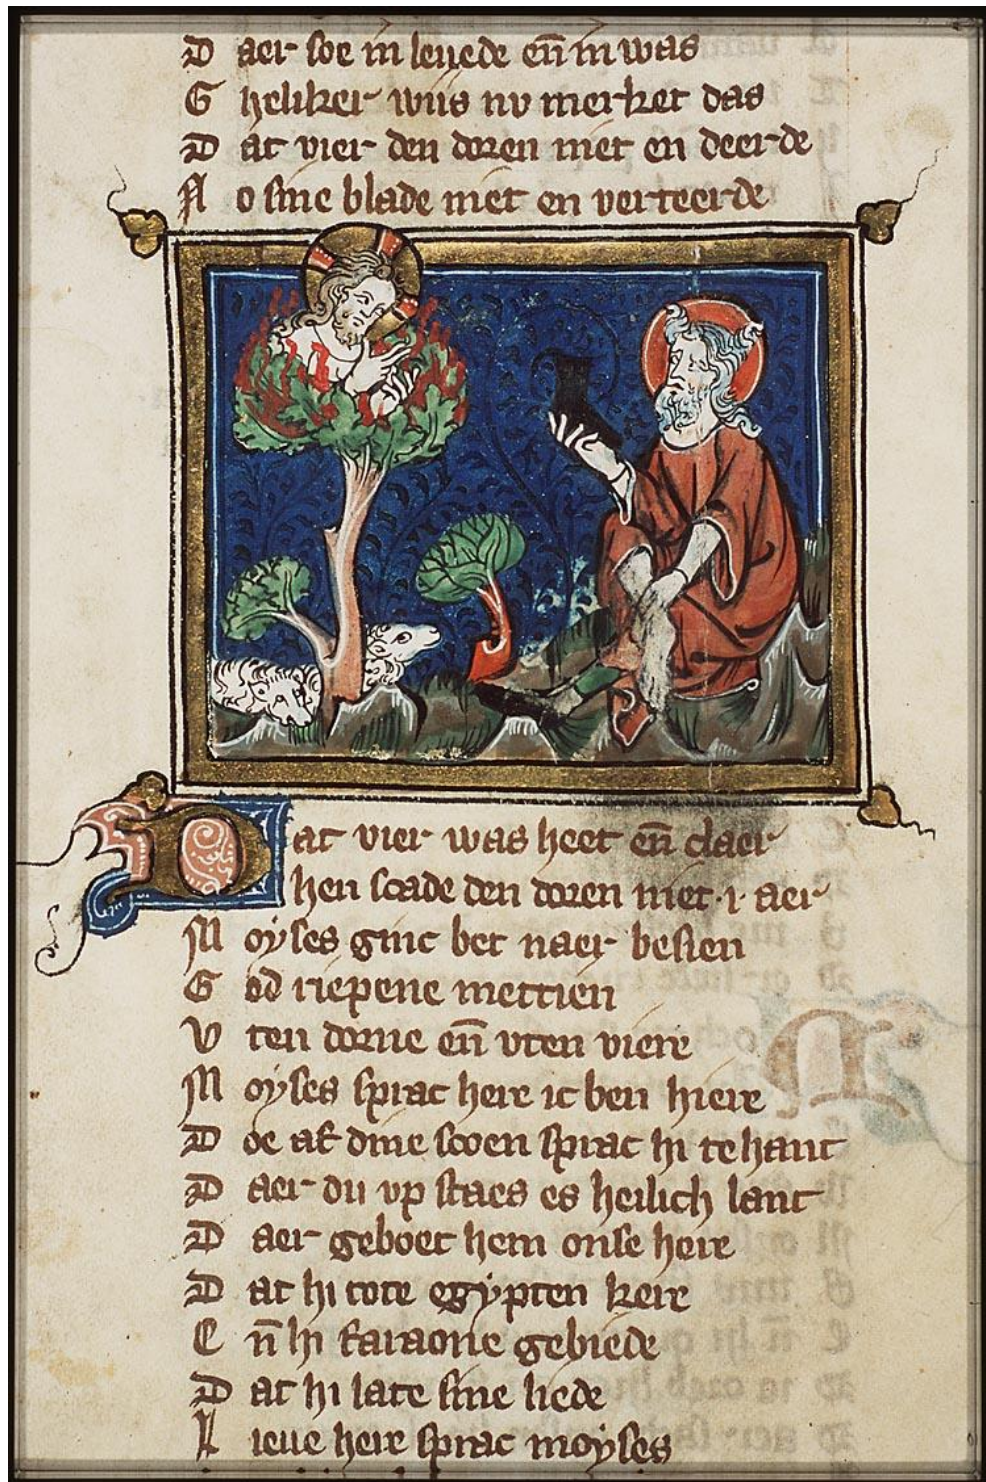 D aer soe in leuede en̄ in was
G heliker wiis nv merket das
D at vier den doren niet en deerde
N o sine blade niet en verteerde
D at vier was heet en̄ claer
hen scade den doren niet · i · aer
M oyses ginc bet naer besien
G od riepene mettien
V ten dorne en̄ vten viere
M oyses sprac here ic ben hiere
D oe af dine scoen sprac hi te hant
D aer du vp staes es heilich lant
D aer geboet hem onse here
D at hi tote egypten kere
E n̄ hi faraone gebiede
D at hi late sine liede
L ieue here sprac moyses